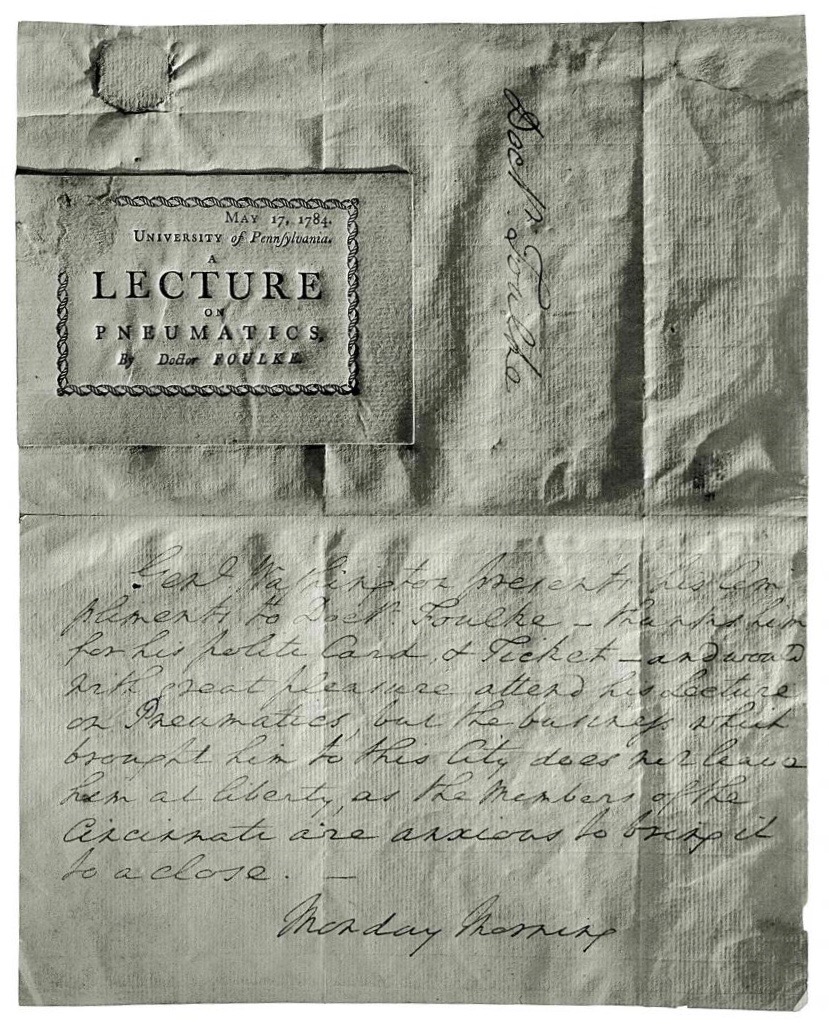 MAY 17, 1784.
UNIVERSITY of Pennſylvania.
A
LECTURE
ON
PNEUMATICS,
By Doctor FOULKE.
Doctr. Foulke
Genl. Washington presents his Com
pliments to Doctr. Foulke – thanks him
for his polite Card, & Ticket – and would
with great pleasure attend his Lecture
on Pneumatics, but the business which
brought him to this City does not leave
him at liberty, as the Members of the
Cincinnati are anxious to bring it
to a close. —
Monday Morning